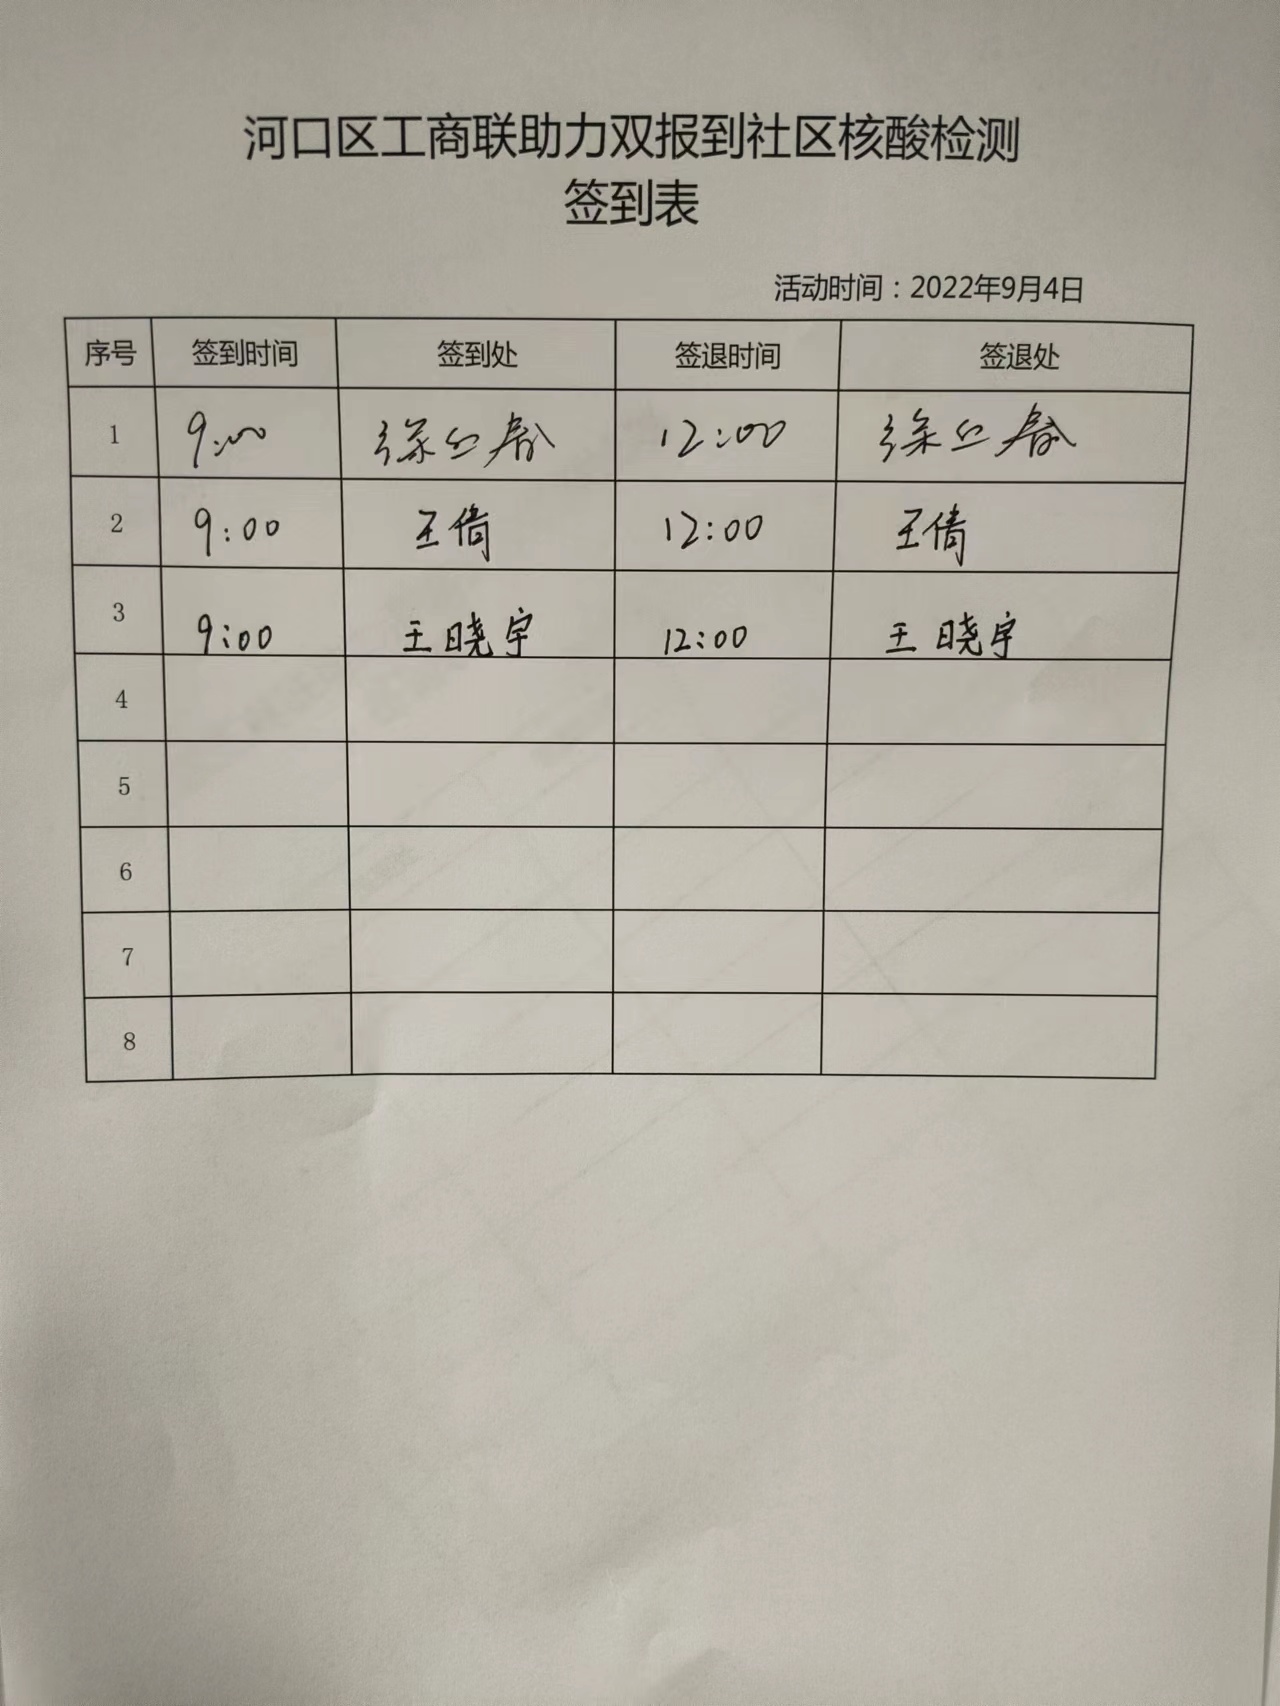 河口区工商联助力双报到社区核酸检测
签到表
活动时间：2022年9月4日
序号 签到时间 签到处 签退时间 签退处
1 9:00 12:00
2 9:00 王倩 12:00 王倩
3 9:00 王晓宇 12:00 王晓宇
4
5
6
7
8